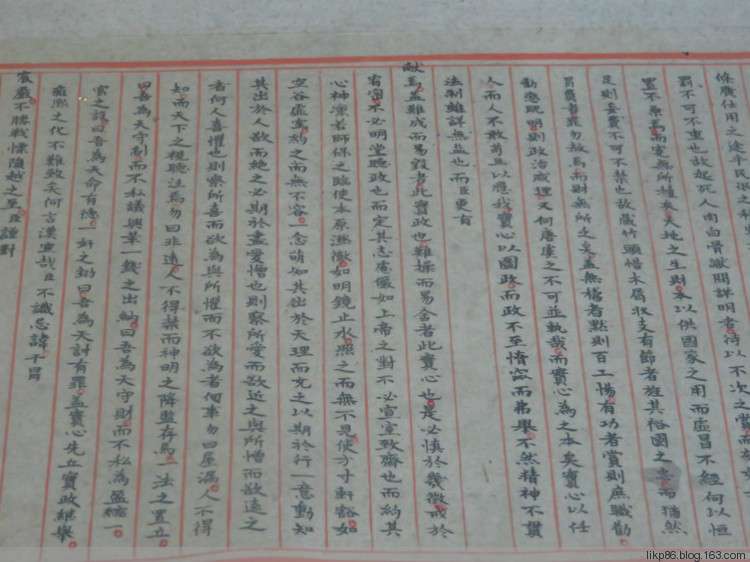 條廣仕用之途平民
罰不可不重也故起死人肉白骨讞問詳明者待以不次之賞而刻如
置不原焉而冤無所積矣天地之生財本以供國家之用而虛冒不經何以恒
足則妄費不可不禁也故藏竹頭惜木屑收支有節者旌其裕國之忠而猶然
冒費者罪勿赦焉而財無所乏矣蓋無稽者黜則百工惕有功者賞則庶職勸
勸懲既明則政治咸理又何唐虞之不可並軌哉而實心為之本矣實心以任
人而人不敢苟且以應我實心以圖政而政不至惰窳而弗舉不然精神不貫
法制雖詳無益也而臣更有
獻焉蓋難成而易毀者此實政也難操而易舍者此實心也是必慎於幾微戒於
宥密不必明堂聽政也而定其志慮儼如上帝之對不必宣室致齋也而約其
心神凜若師保之臨使本原澄徹如明鏡止水照之而無不見使方寸軒豁如
空谷虛室約之而無不容一念萌知其出於天理而充之以期於行一意動知
其出於人欲而絕之必期於盡愛憎也則察所愛而欲近之與所憎而欲遠之
者何人喜懼也則察所喜而欲為與所懼而不欲為者何事勿曰屋漏人不得
知而天下之視聽注焉勿曰非違人不得禁而神明之降監存焉一法之置立
曰吾為天守制而不私議興革一錢之出納曰吾為天守財而不私為盈縮一
官之設曰吾為天命有德一奸之鋤曰吾為天討有罪蓋實心先立實政繼舉
雍熙之化不難致矣何言漢宣哉臣不識忌諱干冒
宸嚴不勝戰慄隕越之至臣謹對
likp86.blog.163.com